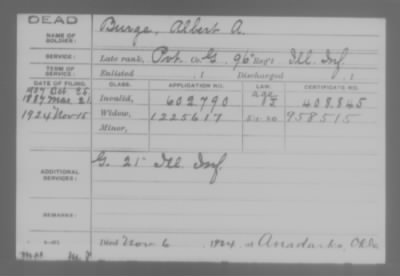 DEAD
NAME OF SOLDIER: Burge, Albert A.
SERVICE: Late rank, Pvt. Co. G, 96" Reg't Ill. Inf.
TERM OF SERVICE: Enlisted , 1 Discharged , 1
DATE OF FILING. CLASS. APPLICATION NO. LAW. CERTIFICATE NO.
Oct 25
1887 Mar. 21 Invalid, 602.790 age 408.845
1924 Nov 15 Widow, 1225617 958515
Minor,
ADDITIONAL SERVICES: G. 21" Ill. Inf.
REMARKS:
Died Nov 6, 1924, at Anadarko, Okla